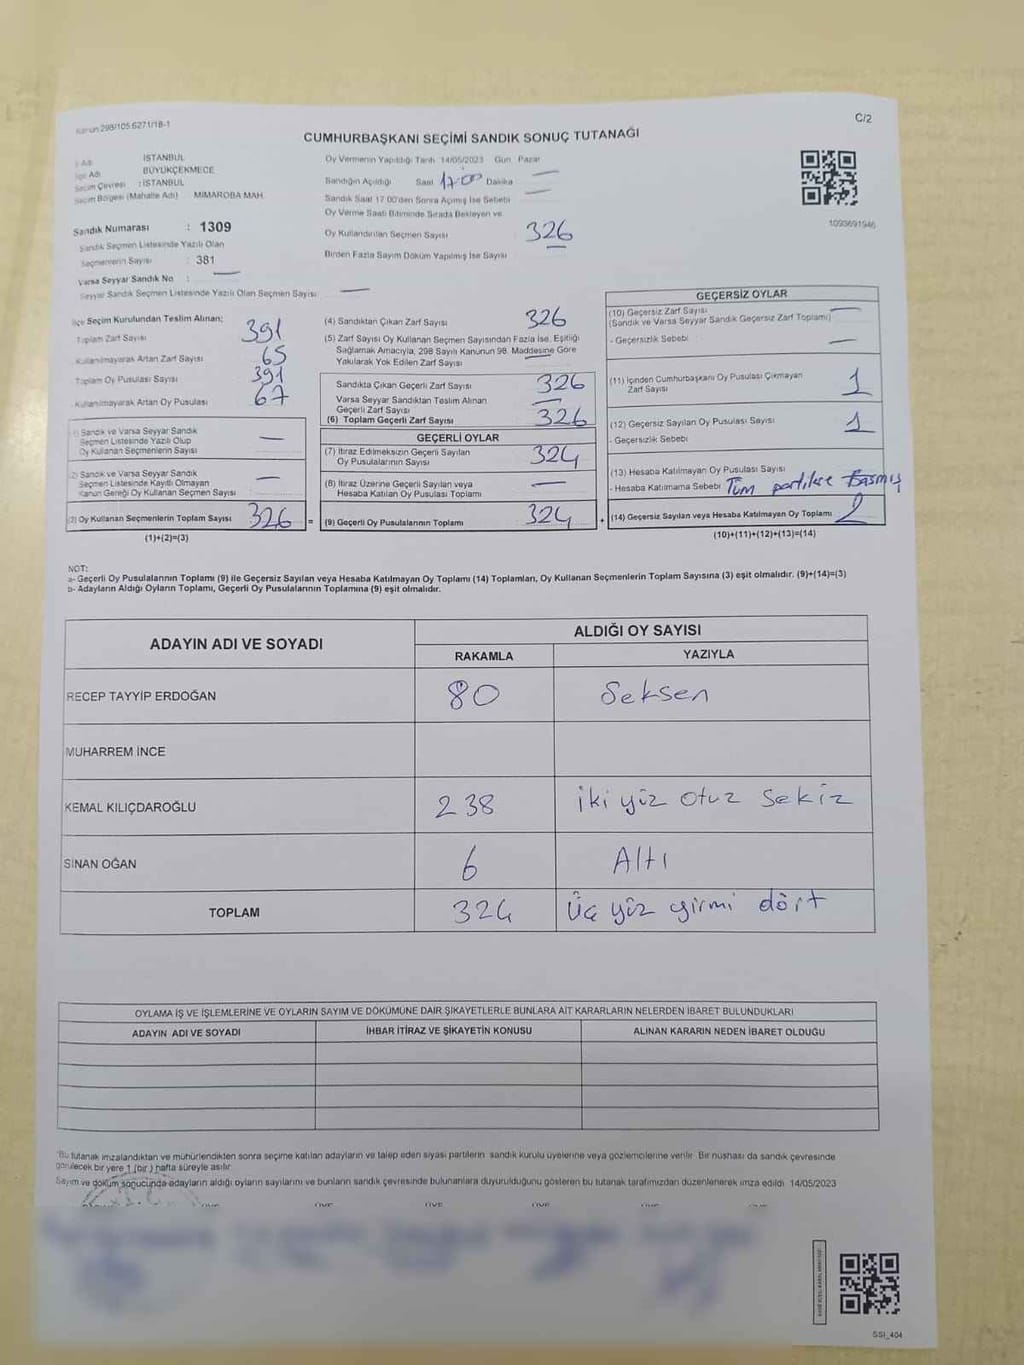 Kanun 298/105 6271/18-1
C/2
CUMHURBAŞKANI SEÇİMİ SANDIK SONUÇ TUTANAĞI
İl Adı İSTANBUL
İlçe Adı BÜYÜKÇEKMECE
Seçim Çevresi : İSTANBUL
Seçim Bölgesi (Mahalle Adı) MİMAROBA MAH.
Sandık Numarası : 1309
Sandık Seçmen Listesinde Yazılı Olan
Seçmenlerin Sayısı : 381
Varsa Seyyar Sandık No :
Seyyar Sandık Seçmen Listesinde Yazılı Olan Seçmen Sayısı
Oy Vermenin Yapıldığı Tarih 14/05/2023 Gün Pazar
Sandığın Açıldığı Saat 17:00 Dakika
Sandık Saat 17:00'den Sonra Açmış İse Sebebi
Oy Verme Saati Bitiminde Sırada Bekleyen ve
Oy Kullandırılan Seçmen Sayısı 326
Birden Fazla Sayım Döküm Yapılmış İse Sayısı
1093691946
İlçe Seçim Kurulundan Teslim Alınan;
Toplam Zarf Sayısı 391
Kullanılmayarak Artan Zarf Sayısı 65
Toplam Oy Pusulası Sayısı 391
Kullanılmayarak Artan Oy Pusulası 67
(1) Sandık ve Varsa Seyyar Sandık
Seçmen Listesinde Yazılı Olup
Oy Kullanan Seçmenlerin Sayısı
(2) Sandık ve Varsa Seyyar Sandık
Seçmen Listesinde Kayıtlı Olmayan
Kanun Gereği Oy Kullanan Seçmen Sayısı
(3) Oy Kullanan Seçmenlerin Toplam Sayısı 326 =
(1)+(2)=(3)
(4) Sandıktan Çıkan Zarf Sayısı 326
(5) Zarf Sayısı Oy Kullanan Seçmen Sayısından Fazla İse, Eşitliği
Sağlamak Amacıyla, 298 Sayılı Kanunun 98. Maddesine Göre
Yakılarak Yok Edilen Zarf Sayısı
Sandıkta Çıkan Geçerli Zarf Sayısı 326
Varsa Seyyar Sandıktan Teslim Alınan
Geçerli Zarf Sayısı
(6) Toplam Geçerli Zarf Sayısı 326
GEÇERLİ OYLAR
(7) İtiraz Edilmeksizin Geçerli Sayılan
Oy Pusulalarının Sayısı 324
(8) İtiraz Üzerine Geçerli Sayılan veya
Hesaba Katılan Oy Pusulası Toplamı
(9) Geçerli Oy Pusulalarının Toplamı 324 +
GEÇERSİZ OYLAR
(10) Geçersiz Zarf Sayısı
(Sandık ve Varsa Seyyar Sandık Geçersiz Zarf Toplamı)
- Geçersizlik Sebebi
(11) İçinden Cumhurbaşkanı Oy Pusulası Çıkmayan
Zarf Sayısı 1
(12) Geçersiz Sayılan Oy Pusulası Sayısı 1
- Geçersizlik Sebebi
(13) Hesaba Katılmayan Oy Pusulası Sayısı
- Hesaba Katılmama Sebebi Tüm Basmış
(14) Geçersiz Sayılan veya Hesaba Katılmayan Oy Toplamı 2
(10)+(11)+(12)+(13)=(14)
NOT:
a- Geçerli Oy Pusulalarının Toplamı (9) ile Geçersiz Sayılan veya Hesaba Katılmayan Oy Toplamı (14) Toplamları, Oy Kullanan Seçmenlerin Toplam Sayısına (3) eşit olmalıdır. (9)+(14)=(3)
b- Adayların Aldığı Oyların Toplamı, Geçerli Oy Pusulalarının Toplamına (9) eşit olmalıdır.
ADAYIN ADI VE SOYADI ALDIĞI OY SAYISI
RAKAMLA YAZIYLA
RECEP TAYYİP ERDOĞAN 80 Seksen
MUHARREM İNCE
KEMAL KILIÇDAROĞLU 238 iki yüz otuz sekiz
SİNAN OĞAN 6 Altı
TOPLAM 324 Üç yüz yirmi dört
OYLAMA İŞ VE İŞLEMLERİNE VE OYLARIN SAYIM VE DÖKÜMÜNE DAİR ŞİKAYETLERLE BUNLARA AİT KARARLARIN NELERDEN İBARET BULUNDUKLARI
ADAYIN ADI VE SOYADI İHBAR İTİRAZ VE ŞİKAYETİN KONUSU ALINAN KARARIN NEDEN İBARET OLDUĞU
*Bu tutanak imzalandıktan ve mühürlendikten sonra seçime katılan adayların ve talep eden siyasi partilerin sandık kurulu üyelerine veya gözlemcilerine verilir. Bir nüshası da sandık çevresinde
görülecek bir yere 1 (bir ) hafta süreyle asılır.
Sayım ve döküm sonucunda adayların aldığı oyların sayılarını ve bunların sandık çevresinde bulunanlara duyurulduğunu gösteren bu tutanak tarafımızdan düzenlenerek imza edildi. 14/05/2023
SSI_404